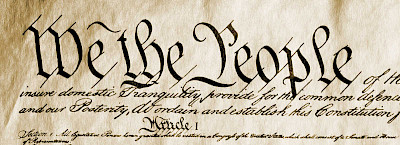 We the People of the
insure domestic Tranquility, provide for the common defence
and our Posterity, do ordain and establish this Constitution
Article 1
Section 1 All legislative Powers herein granted shall be vested in a Congress of the United States which shall consist of a Senate and House
of Representatives